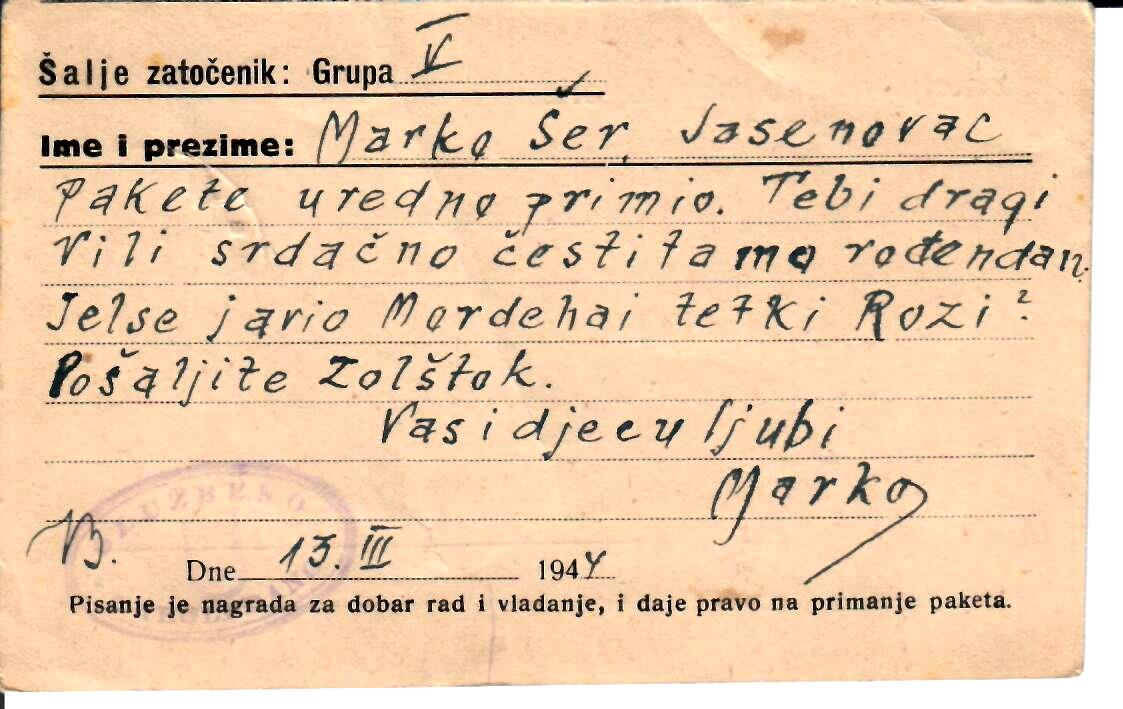 Šalje zatočenik: Grupa V
Ime i prezime: Marko Šer, Jasenovac
Pakete uredno primio. Tebi dragi
Vili srdačno čestitamo rođendan.
Jelse javio Mordehai tetki Rozi?
Pošaljite Zolštok.
Vas i djecu ljubi
Marko
SLUŽBENO
B.
Dne 13. III 1944
Pisanje je nagrada za dobar rad i vladanje, i daje pravo na primanje paketa.